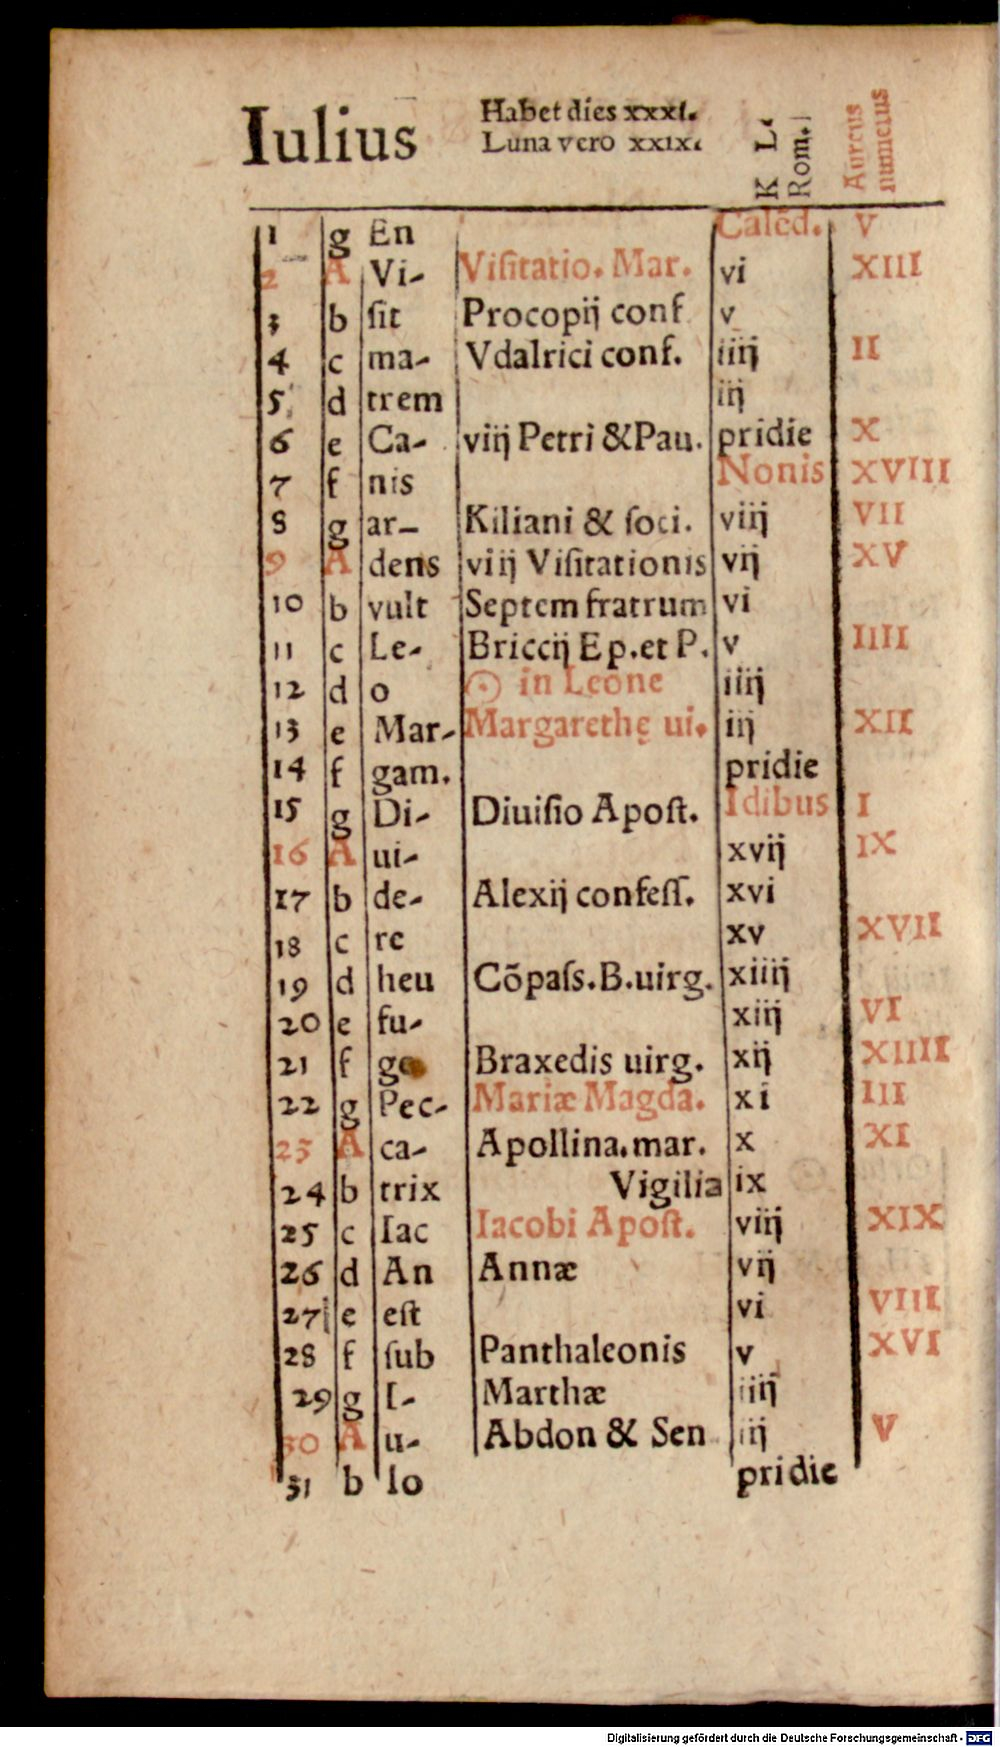 Iulius
Habet dies xxxi.
Luna vero xxix.
K L.
Rom.
Aureus
numerus
1 g En Calēd. V
2 A Vi- Viſitatio. Mar. vi XIII
3 b ſit Procopij conf v
4 c ma- Vdalrici conf. iiij II
5 d trem iij
6 e Ca- viij Petri & Pau. pridie X
7 f nis Nonis XVIII
8 g ar- Kiliani & ſoci. viij VII
9 A dens viij Viſitationis vij XV
10 b vult Septem fratrum vi
11 c Le- Briccij Ep. et P. v IIII
12 d o ☉ in Leone iiij
13 e Mar- Margarethę ui. iij XII
14 f gam. pridie
15 g Di- Diuiſio Apoſt. Idibus I
16 A ui- xvij IX
17 b de- Alexij confeſſ. xvi
18 c re xv XVII
19 d heu Cōpaſs. B. uirg. xiiij
20 e fu- xiij VI
21 f ge Braxedis uirg. xij XIIII
22 g Pec- Mariæ Magda. xi III
23 A ca- Apollina. mar. x XI
24 b trix Vigilia ix
25 c Iac Iacobi Apoſt. viij XIX
26 d An Annæ vij
27 e eſt vi VIII
28 f ſub Panthaleonis v XVI
29 g I- Marthæ iiij
30 A u- Abdon & Sen iij V
31 b lo pridie
Digitalisierung gefördert durch die Deutsche Forschungsgemeinschaft - DFG